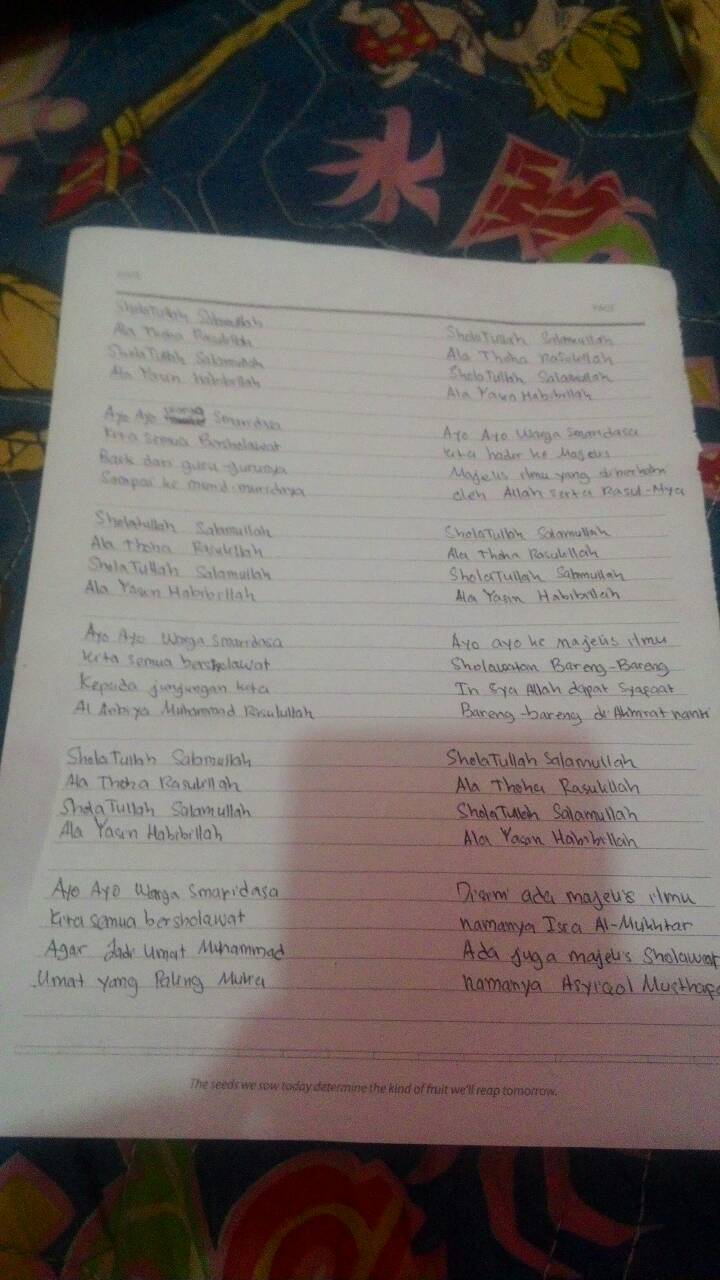 SholaTullah Salamullah
Ala Thoha Rasulillah
SholaTullah Salamullah
Ala Yasin Habibillah
Ayo Ayo Smaridasa
Kita semua Bersholawat
Baik dari guru-gurunya
Sampai ke murid-muridnya
Sholatullah Salamullah
Ala Thoha Rasulillah
SholaTullah Salamullah
Ala Yasin Habibillah
Ayo Ayo Warga Smaridasa
Kita semua bersholawat
Kepada junjungan kita
Al Anbiya Muhammad Rasulullah
SholaTullah Salamullah
Ala Thoha Rasulillah
SholaTullah Salamullah
Ala Yasin Habibillah
Ayo Ayo Warga Smaridasa
Kita semua bersholawat
Agar Jadi Umat Muhammad
Umat yang Paling Mulia
PAGE
SholaTullah Salamullah
Ala Thoha Rasulillah
SholaTullah Salamullah
Ala Yasin Habibillah
Ayo Ayo Warga Smaridasa
Kita hadir ke Majelis
Majelis ilmu yang
oleh Allah serta Rasul-Nya
SholaTullah Salamullah
Ala Thoha Rasulillah
SholaTullah Salamullah
Ala Yasin Habibillah
Ayo ayo ke majelis ilmu
Sholawatan Bareng-Bareng
In sya Allah dapat Syafaat
Bareng-bareng di Akhirat nanti
SholaTullah Salamullah
Ala Thoha Rasulillah
SholaTullah Salamullah
Ala Yasin Habibillah
Disini ada majelis ilmu
namanya Isra Al-Mukhtar
Ada juga majelis Sholawat
namanya Asyiqol Musthofa
The seeds we sow today determine the kind of fruit we'll reap tomorrow.